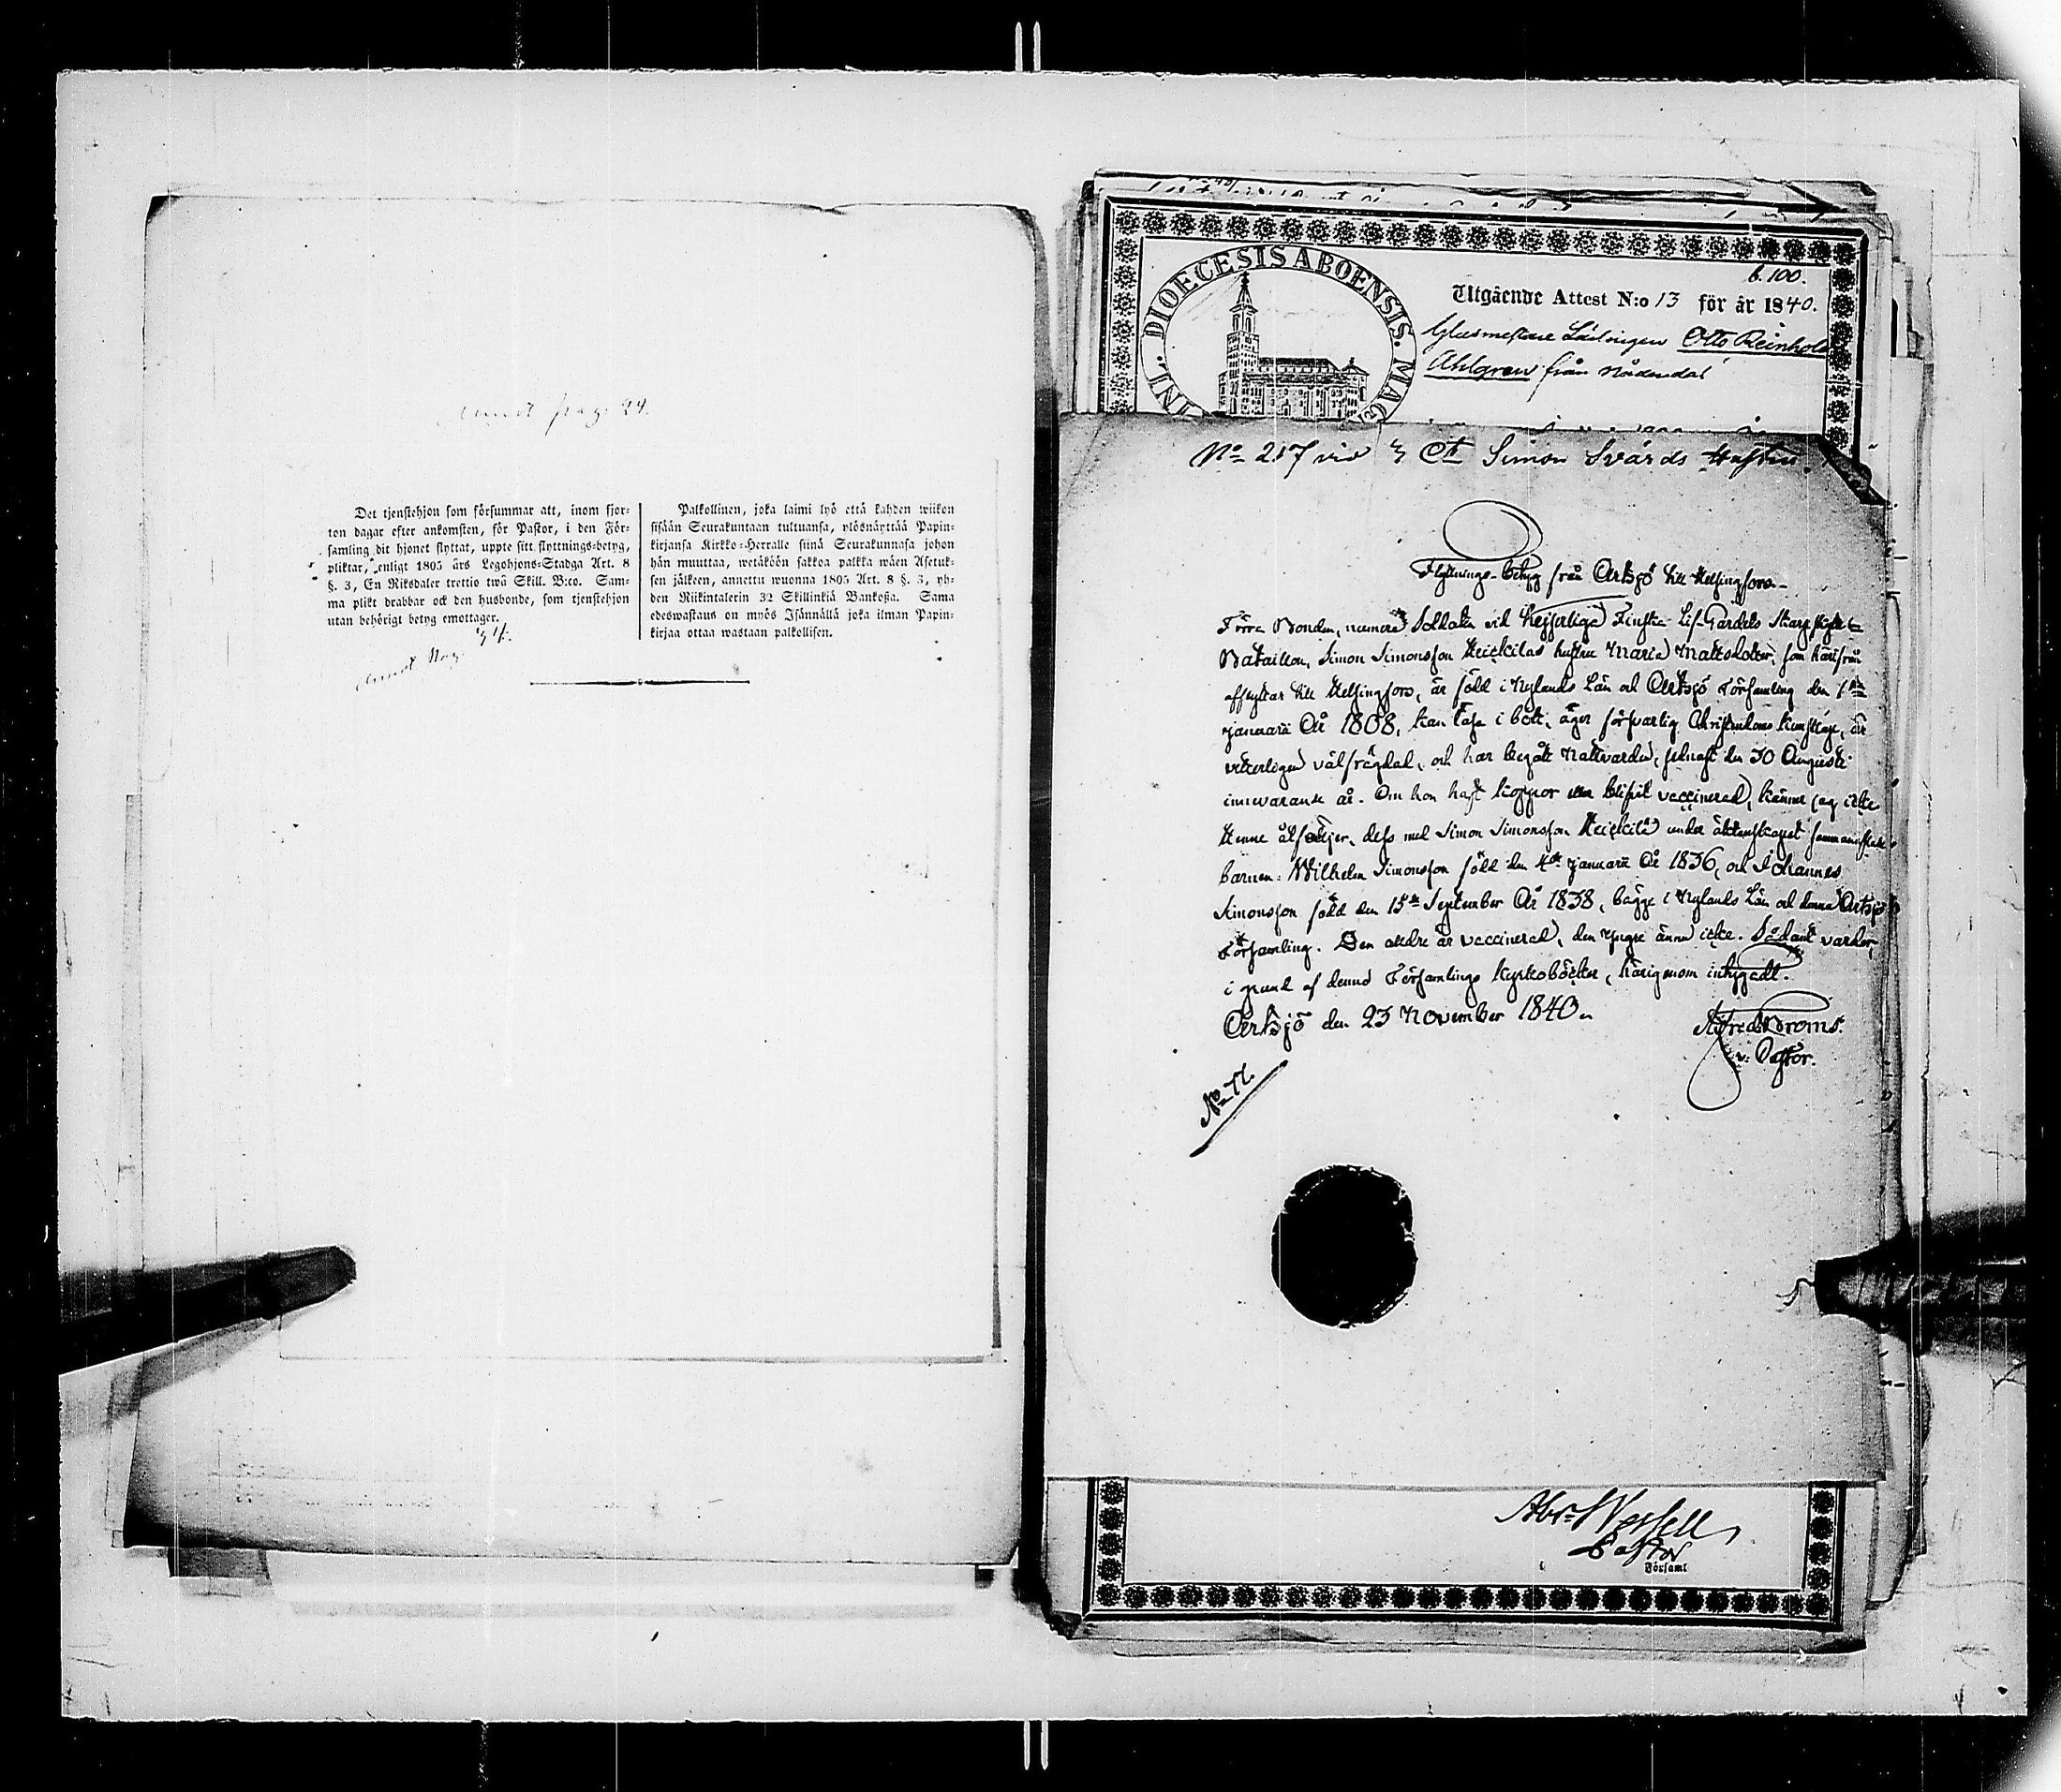 pag. 24.
Det tjenstehjon som försummar att, inom fjor-
ton dagar efter ankomsten, för Pastor, i den För-
samling dit hjonet flyttat, uppte sitt flyttnings-betyg,
pliktar, enligt 1805 års Legohjons-Stadga Art. 8
§. 3, En Riksdaler trettio twå Skill. B:co. Sam-
ma plikt drabbar ock den husbonde, som tjenstehjon
utan behörigt betyg emottager.
Palkollinen, joka laimi lyö että kahden wiikon
sisään Seurakuntaan tultuansa, ylösnäyttää Papin-
kirjansa Kirkko-Herralle siinä Seurakunnasa johon
hän muuttaa, wetäköön sakkoa palkka wäen Asetuk-
sen jälkeen, annettu wuonna 1805 Art. 8 §. 3, yh-
den Riikintalerin 32 Skillinkiä Bankosa. Sama
edeswastaus on myös Isännällä joka ilman Papin-
kirjaa ottaa wastaan palkollisen.
DIOECESIS ABOENSIS. MAG
b. 100.
Utgående Attest N:o 13 för år 1840.
Glasmestare Lärlingen Otto Reinhold
Ahlgren från Nådendal
No 217 vid 3 Ct Simon Svärds Hustru.
Flyttnings-Betyg från Artsjö till Helsingfors.
Förra Bonden, numera Soldaten vid Kejserliga Finska Lif-Gardets Skarpskytte
Bataillon, Simon Simonsson Heickilas hustru Maria Mattsdotter, som härifrån
afflyttar till Helsingfors, är född i Nylands Län och Artsjö Församling den 1sta
januarii År 1808, kan läsa i bok, äger försvarlig Christendoms kunskap, är
veterligen välfrägdad, och har begått Nattvarden, sednast den 30 Augusti
innevarande år. Om hon haft koppor eller blifvit vaccinerad, känner jag icke
Henne åtföljer, dess med Simon Simonsson Heickilä under äktenskapet sammanaflade
barnen: Wilhelm Simonsson född den 4de januarii År 1836, och Johannes
Simonsson född den 15de September År 1838, bägge i Nylands Län och denna Artsjö
Församling. Den äldre är vaccinerad, den yngre ännu icke. Sådant varder,
i grund af denna Församlings Kyrkoböcker, härigenom intygadt.
Artsjö den 23 November 1840.
Alfred Broms.
v. Pastor.
No 77.
Pastor
Församl